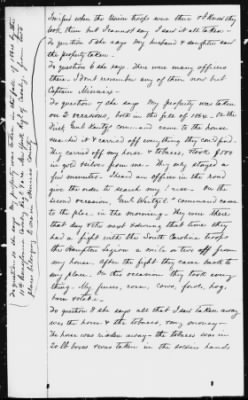 in fact when the Union troops was there & I knew they
took them but I cannot say I saw it all taken -
To question 5 she says My husband & daughter saw
the property taken
To question 6 she says There were many officers
there - I don't remember any of them now but
Captain
To question 7 she says My property was taken
on 2 occasions, both in the fall of 1864 - On the
first, Genl Kautz' command came to the house
& carried off everything they could find.
They carried off my horse & tobacco, took $100
in gold & silver from me - They only stayed a
few minutes - I heard an officer in the road
give the order to search my house - On the
second occasion, Genl Kautz' command came
to the place in the morning. They were there
that day & the next & during that time they
had a fight with the South Carolina troops
the Hampton Legion a mile or two off from
my house & after the fight they came back to
my place. On this occasion they took every
thing - My horses, corn, cows, fowls, hog,
To question 8 she says all that I saw taken away
was the horse & the tobacco, & my money -
The horse was ridden away - the tobacco was in
20 lb boxes & was taken in the soldiers hands
To question 7 says My property was taken in the fall of 1864 by the
11th Pennsylvania Cavalry Regt & 1st New York Regt of Cavalry